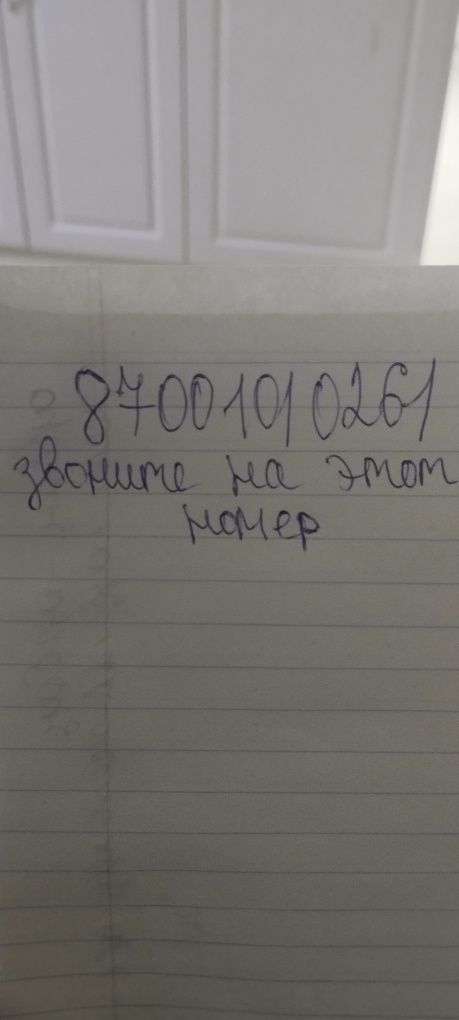 87001010261
звоните на этот
номер